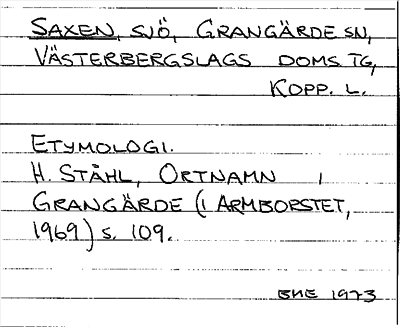 SAXEN, SJÖ, GRANGÄRDE SN,
VÄSTERBERGSLAGS DOMS TG,
KOPP. L.
ETYMOLOGI.
H. STÅHL, ORTNAMN I
GRANGÄRDE (I ARMBORSTET,
1969) S. 109.
BHE 1973